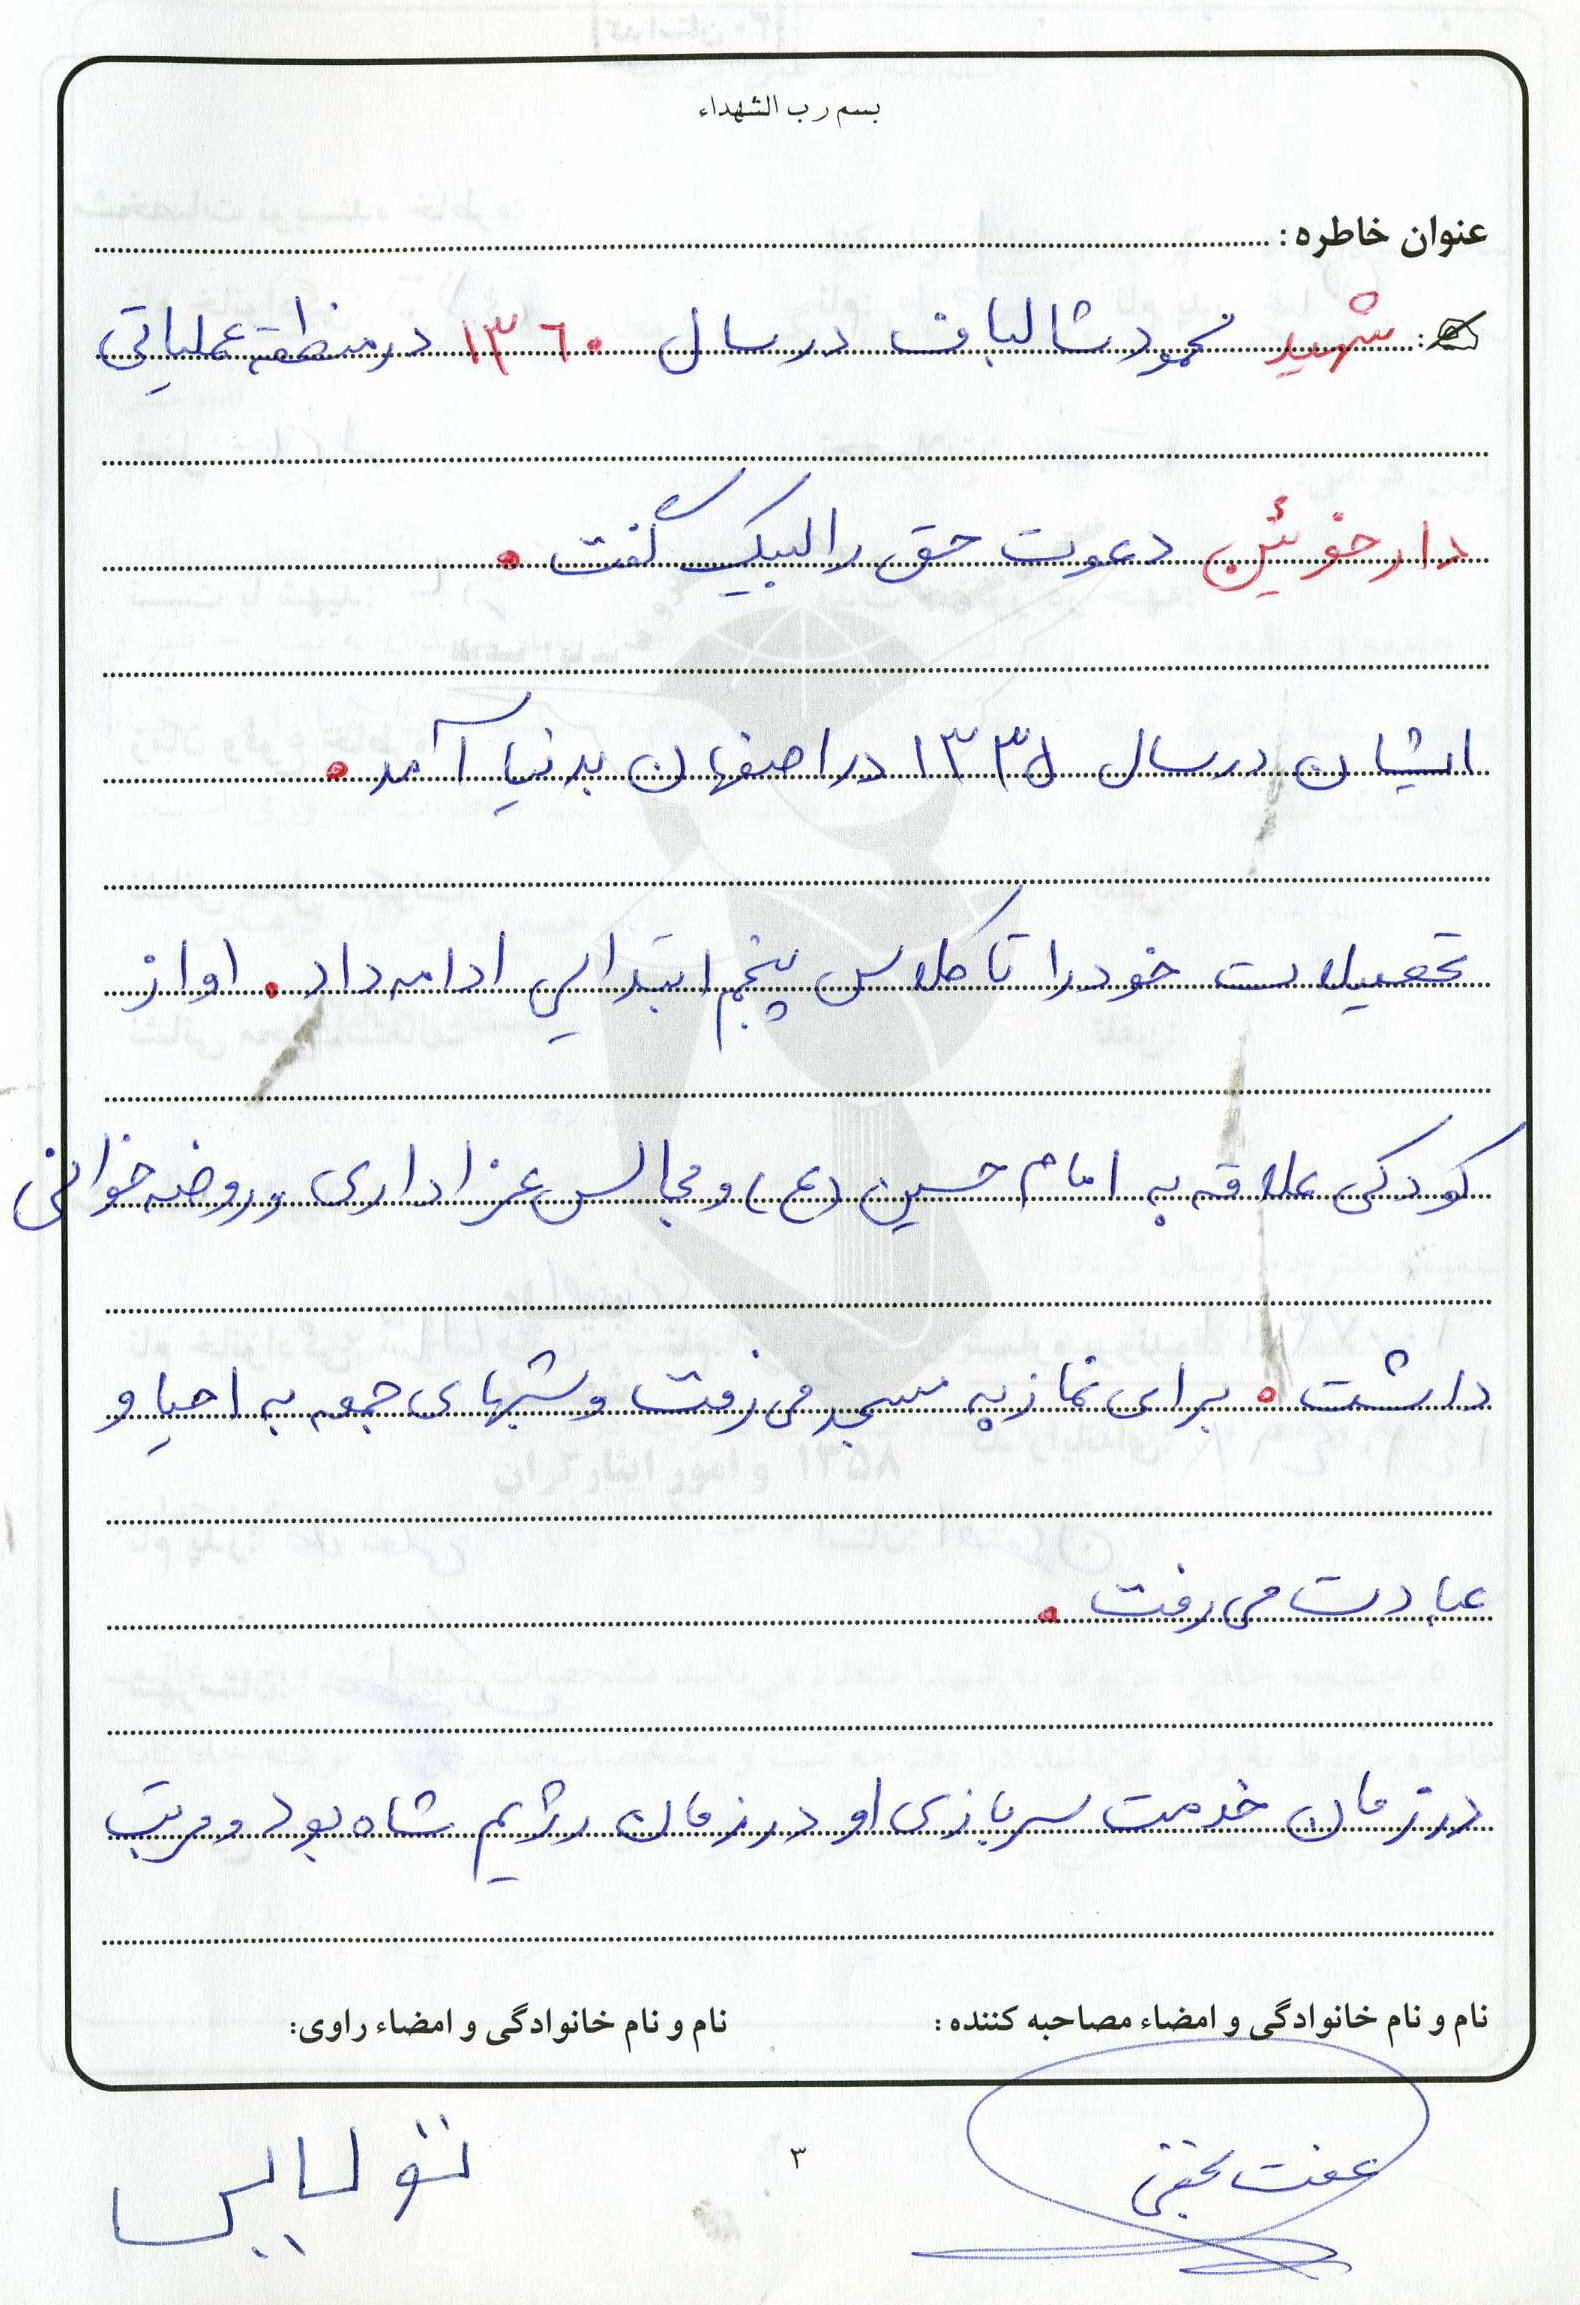 بسم رب الشهداء
عنوان خاطره :
شهید محمود شالباف در سال ۱۳٦۰ در منطقه عملیاتی
دارخوئین دعوت حق را لبیک گفت .
ایشان در سال ۱۳۳۵ در اصفهان بدنیا آمد .
تحصیلات خود را تا کلاس پنجم ابتدایی ادامه داد . او از
کودکی علاقه به امام حسین (ع) و مجالس عزاداری و روضه خوانی
داشت . برای نماز به مسجد می رفت و شبهای جمعه به احیا و
عبادت می رفت .
در زمان خدمت سربازی او در زمان رژیم شاه بود و مرتب
نام و نام خانوادگی و امضاء مصاحبه کننده :
نام و نام خانوادگی و امضاء راوی:
عفت
۳